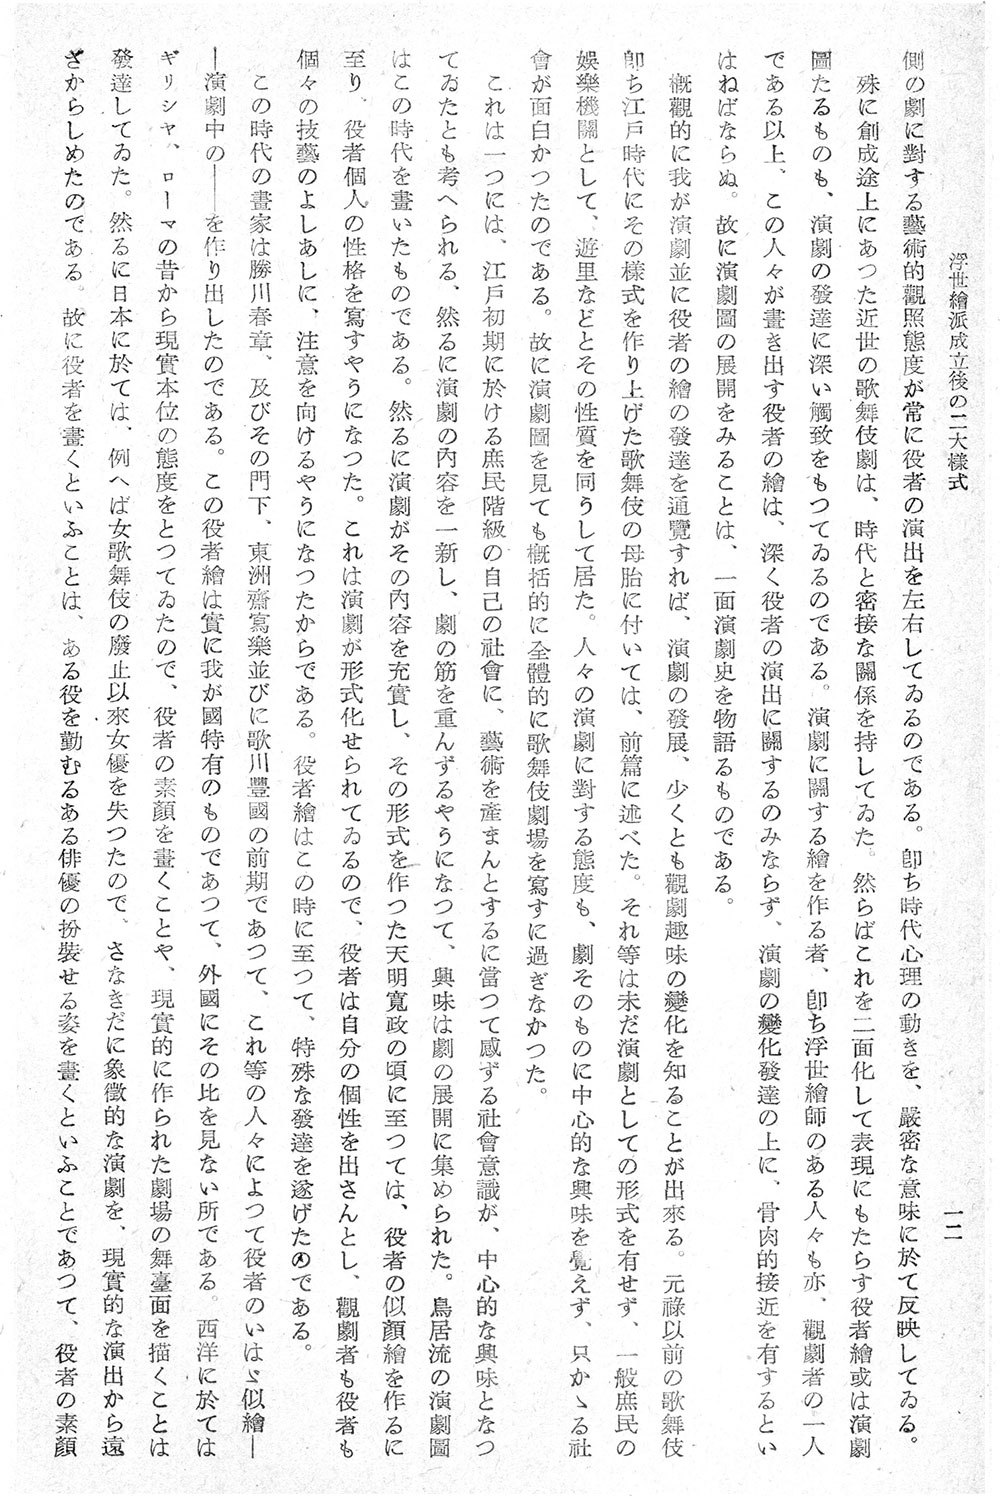 浮世繪派成立後の二大樣式
一二
側の劇に對する藝術的觀照態度が常に役者の演出を左右してゐるのである。卽ち時代心理の動きを、嚴密な意味に於て反映してゐる。
殊に創成途上にあつた近世の歌舞伎劇は、時代と密接な關係を持してゐた。然らばこれを二面化して表現にもたらす役者繪或は演劇
圖たるものも、演劇の發達に深い觸致をもつてゐるのである。演劇に關する繪を作る者、卽ち浮世繪師のある人々も亦、觀劇者の一人
である以上、この人々が畫き出す役者の繪は、深く役者の演出に關するのみならず、演劇の變化發達の上に、骨肉的接近を有するとい
はねばならぬ。故に演劇圖の展開をみることは、一面演劇史を物語るものである。
槪觀的に我が演劇並に役者の繪の發達を通覽すれば、演劇の發展、少くとも觀劇趣味の變化を知ることが出來る。元祿以前の歌舞伎
卽ち江戶時代にその樣式を作り上げた歌舞伎の母胎に付いては、前篇に述べた。それ等は未だ演劇としての形式を有せず、一般庶民の
娛樂機關として、遊里などとその性質を同うして居た。人々の演劇に對する態度も、劇そのものに中心的な興味を覺えず、只かゝる社
會が面白かつたのである。故に演劇圖を見ても槪括的に全體的に歌舞伎劇場を寫すに過ぎなかつた。
これは一つには、江戶初期に於ける庶民階級の自己の社會に、藝術を產まんとするに當つて感ずる社會意識が、中心的な興味となつ
てゐたとも考へられる、然るに演劇の內容を一新し、劇の筋を重んずるやうになつて、興味は劇の展開に集められた。鳥居流の演劇圖
はこの時代を畫いたものである。然るに演劇がその內容を充實し、その形式を作つた天明寬政の頃に至つては、役者の似顏繪を作るに
至り、役者個人の性格を寫すやうになつた。これは演劇が形式化せられてゐるので、役者は自分の個性を出さんとし、觀劇者も役者も
個々の技藝のよしあしに、注意を向けるやうになつたからである。役者繪はこの時に至つて、特殊な發達を遂げたのである。
この時代の畫家は勝川春章、及びその門下、東洲齋寫樂並びに歌川豐國の前期であつて、これ等の人々によつて役者のいはゞ似繪―
―演劇中の――を作り出したのである。この役者繪は實に我が國特有のものであつて、外國にその比を見ない所である。西洋に於ては
ギリシヤ、ローマの昔から現實本位の態度をとつてゐたので、役者の素顏を畫くことや、現實的に作られた劇場の舞臺面を描くことは
發達してゐた。然るに日本に於ては、例へば女歌舞伎の廢止以來女優を失つたので、さなきだに象徵的な演劇を、現實的な演出から遠
ざからしめたのである。故に役者を畫くといふことは、ある役を勤むるある俳優の扮裝せる姿を畫くといふことであつて、役者の素顏